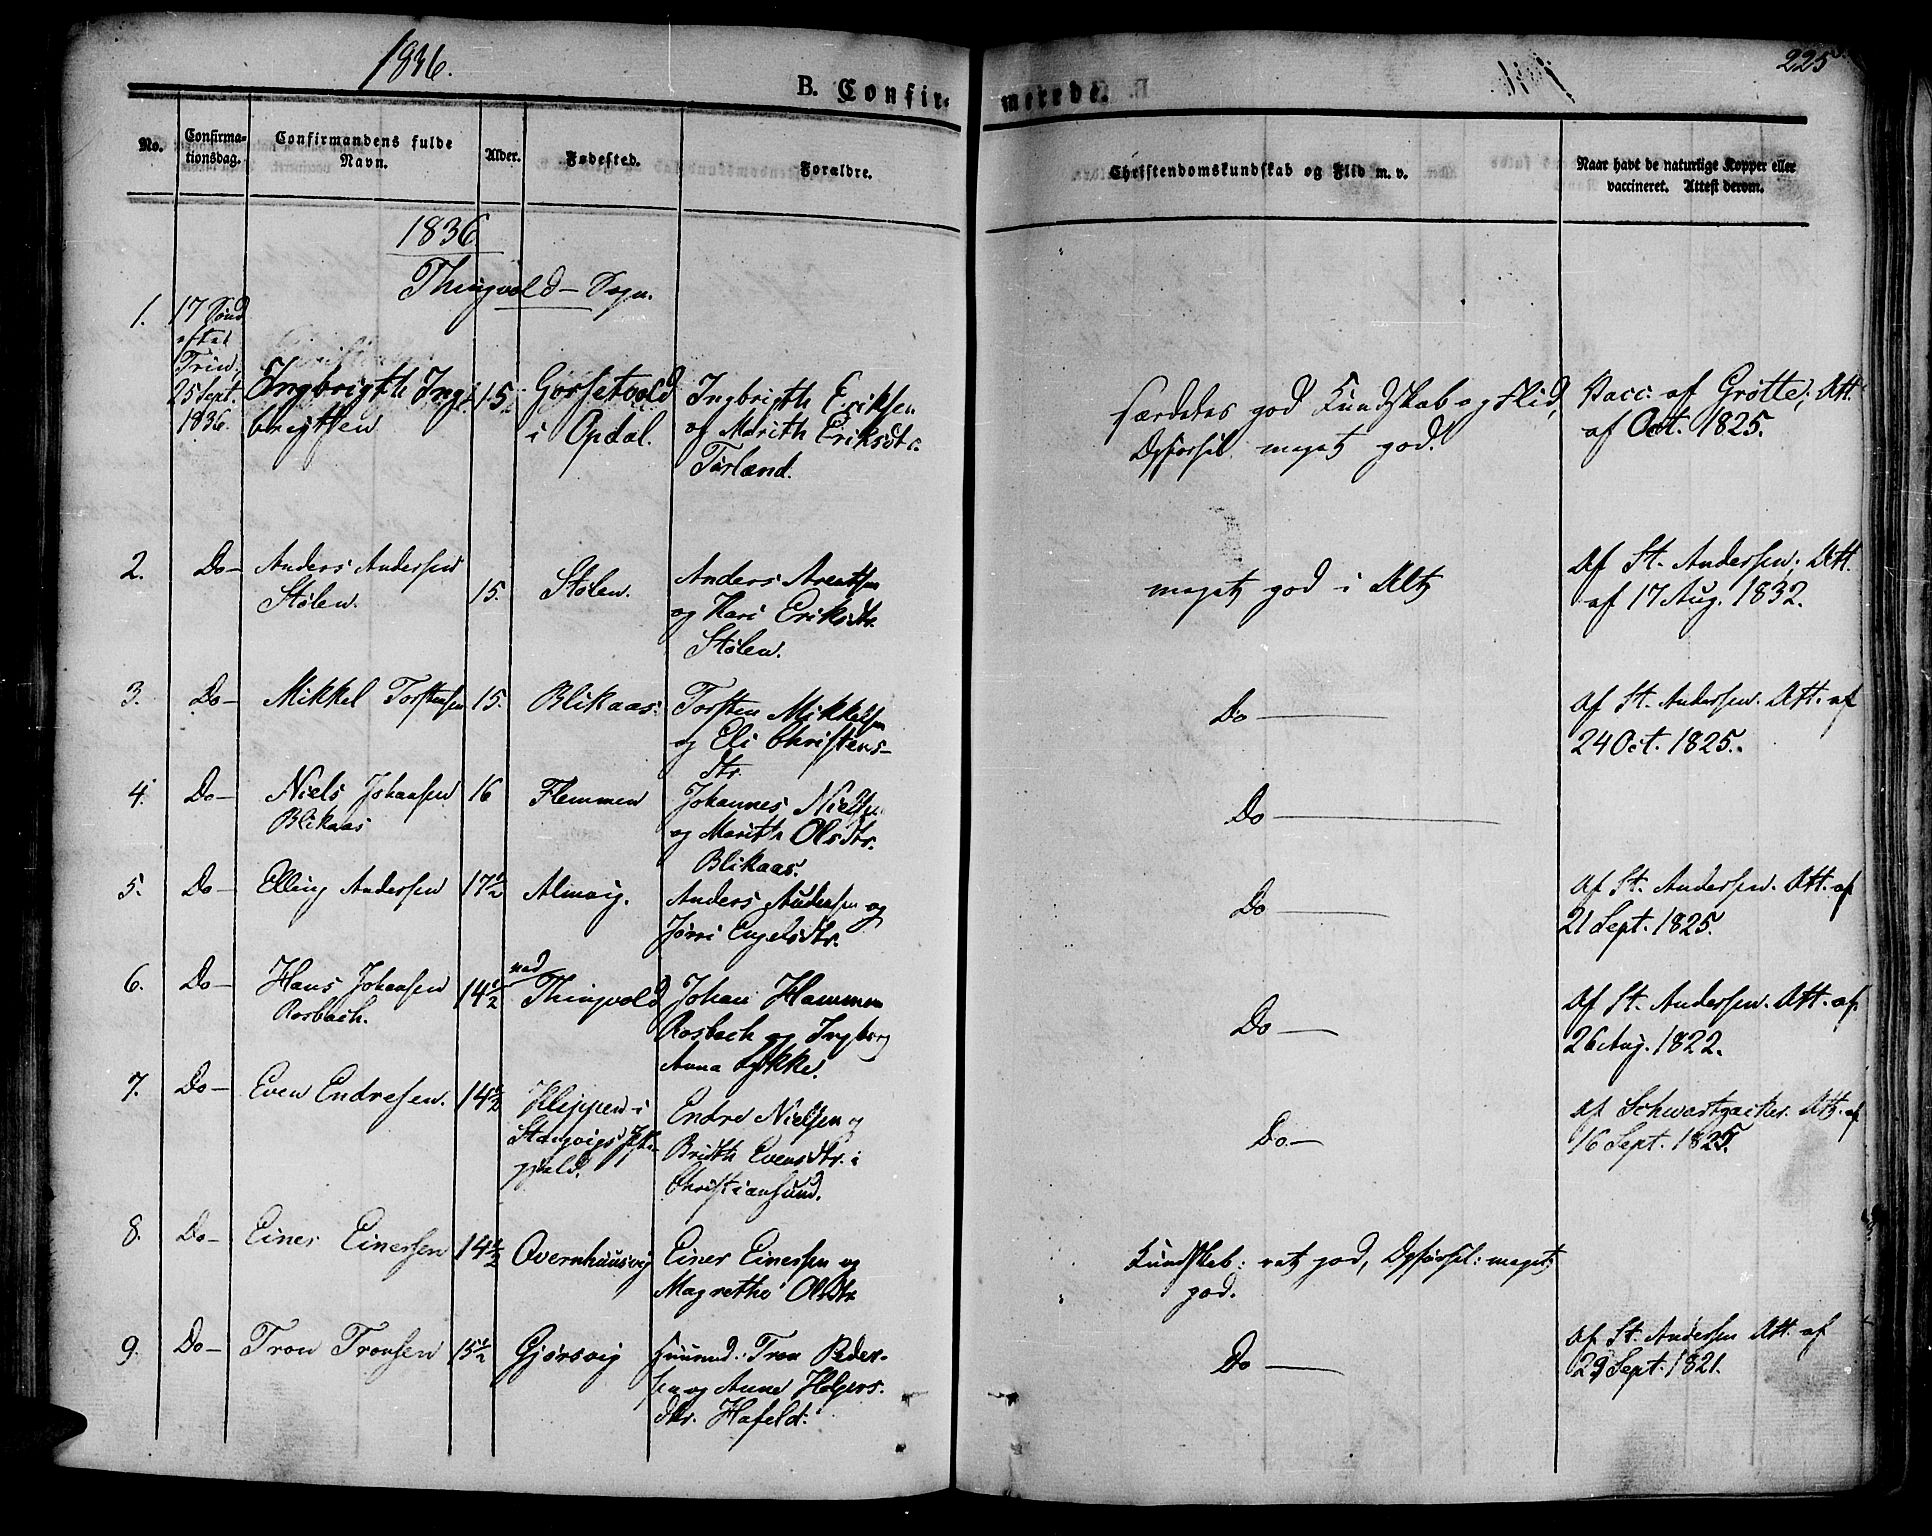 1836.
225
B. Confirmerede.
No.
Confirmationsdag.
Confirmandens fulde Navn.
Alder.
Fødested.
Forældre.
Christendomskundskab og Flid m. v.
Naar havt de naturlige Kopper eller vaccineret. Attest derom.
1836
Thingvold - Sogn.
1.
17 Sønd
efter
Trin,
25 Sept.
1836.
Ingbrigth Ing-
brigtsen
15.
Gorsetvold
i Opdal.
Ingbrigth Eriksen
og Marith Eriksdtr.
særdeles god Kundskab og Flid,
Opførsel meget god.
Vacc: af Grøtte; Att.
af Oct. 1825.
2.
Do-
Anders Andersen
Stølen.
15.
Stølen.
Anders Arentsen
og Kari Eriksdtr.
Stølen.
meget god i Alt
Af St. Andersen; Att.
af 17 Aug. 1832.
3.
Do-
Mikkel Torstensen
15.
Blikaas.
Torsten Mikkelsen
og Eli Christens-
dtr.
Do
Af St. Andersen. Att. af
24 Oct. 1825.
4.
Do-
Niels Johansen
Blikaas
16
Flemmen
Johannes Nielsen
og Marith Olsdtr.
Blikaas.
Do
5.
Do-
Elling Andersen
17½
Almvig.
Anders Andersen og
Engelsdtr.
Do
Af St. Andersen. Att. af
21 Sept. 1825.
6.
Do-
Hans Johansen
Rosbach.
14½
ved
Thingvold
Johan
Rosbach og Ingborg
Anna Lykke.
Do
Af St. Andersen. Att. af
26 Aug. 1822.
7.
Do-
Even Endresen.
14½
i
Endre Nielsen og
Brith Evensdtr. i
Christiansund.
Do-
Af Schwartzacker. Att. af
16 Sept. 1825.
8.
Do-
Einer Einersen
14½
Einer Einersen og
Magrethe Olsdtr
Kundskab: ret god, Opførsel: meget
god.
9.
Do-
Tron Tronsen
15½
Gjørsvig
Tron Peder-
sen og Anne Holgers-
dtr. Hafeld.
Do
Af St. Andersen Att. af
29 Sept. 1821.